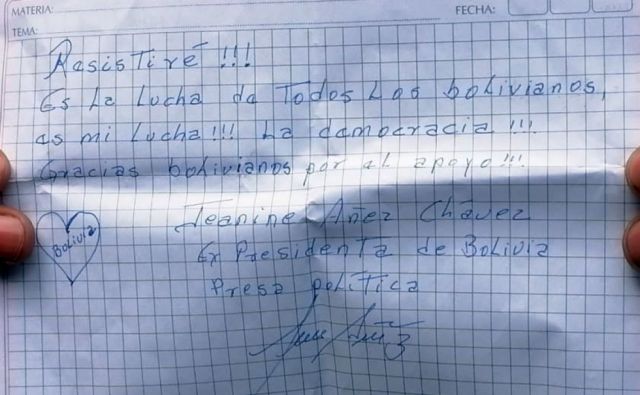 MATERIA: FECHA:
TEMA:
Resistiré !!!
Es la lucha de Todos Los bolivianos,
es mi lucha!!! La democracia !!!
Gracias bolivianos por el apoyo!!!
Jeanine Añez Chávez
Ex Presidenta de Bolivia
Presa política
Bolivia